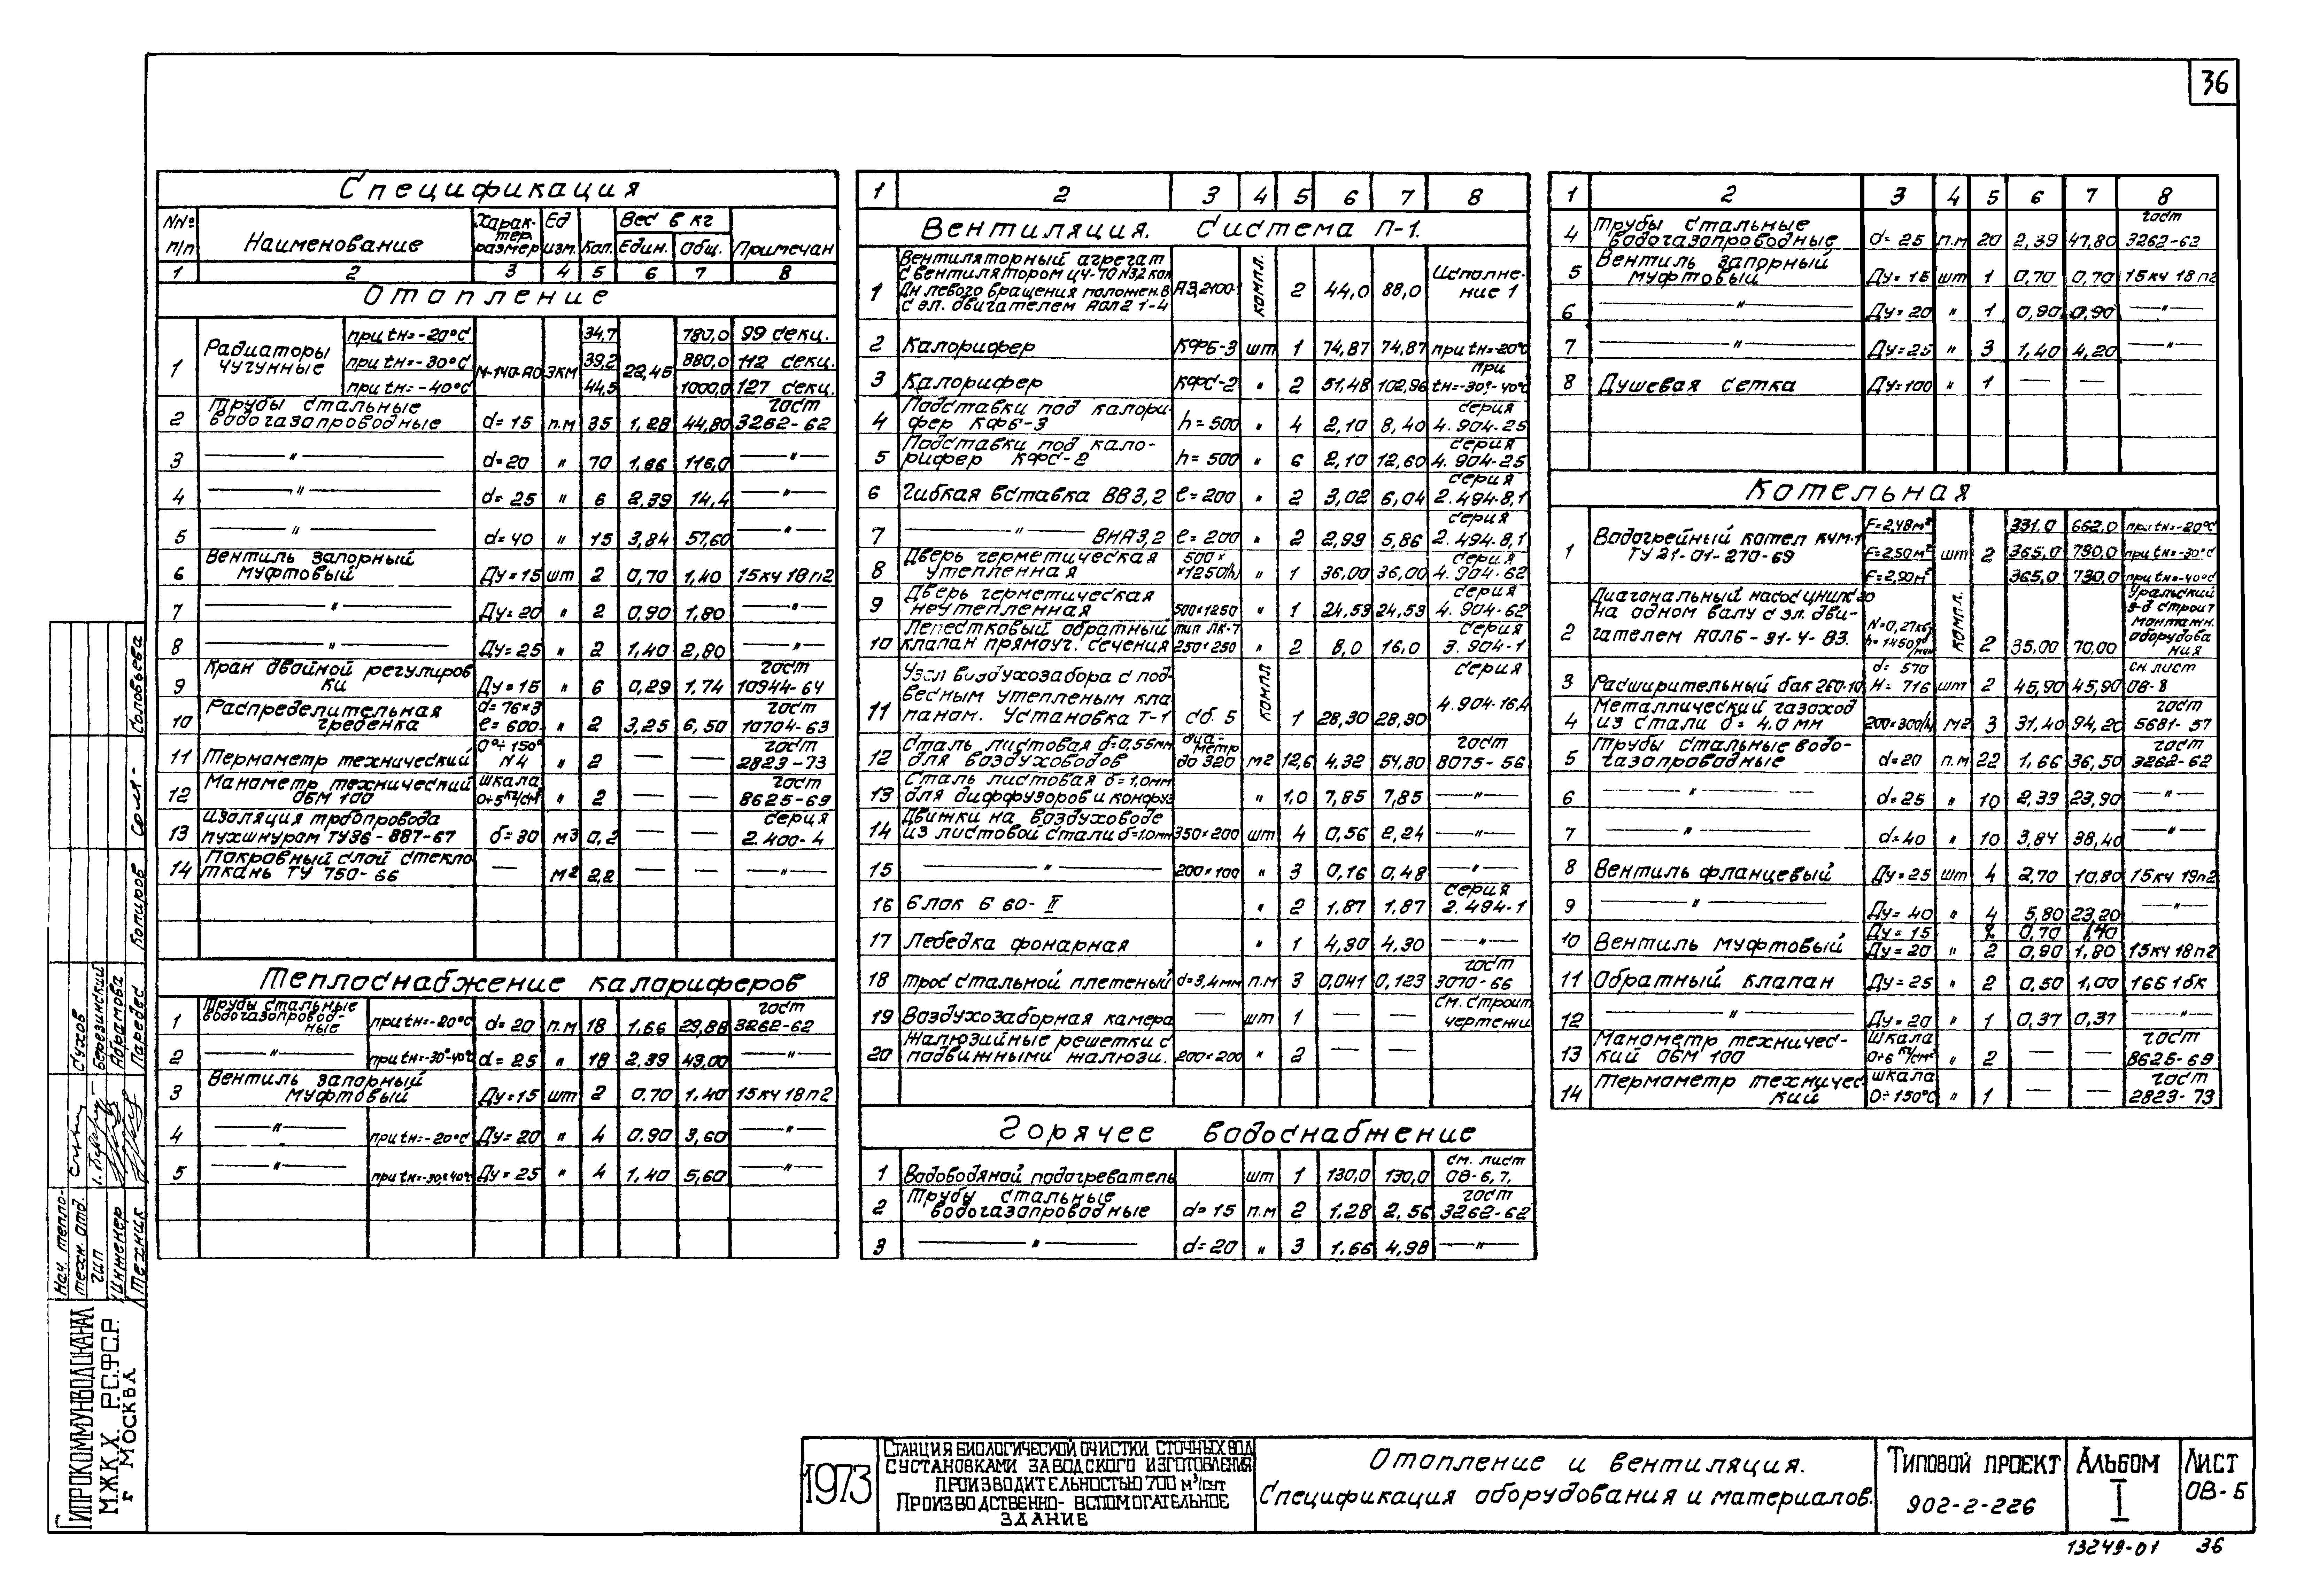 36
Спецификация
№№ п/п Наименование Характер. размер Ед изм. Кол. Вес в кг Един. Общ. Примечан
1 2 3 4 5 6 7 8
Отопление
1 Радиаторы чугунные М-140-АО ЭКМ 22,45
при tн=-20°C 34,7 780,0 99 секц.
при tн=-30°C 39,2 880,0 112 секц.
при tн=-40°C 44,5 1000,0 127 секц.
2 Трубы стальные водогазопроводные d=15 п.м 35 1,28 44,80 гост 3262-62
3 —"— d=20 " 70 1,66 116,0 —"—
4 —"— d=25 " 6 2,39 14,4 —"—
5 —"— d=40 " 15 3,84 57,60 —"—
6 Вентиль запорный муфтовый Ду=15 шт 2 0,70 1,40 15кч18п2
7 —"— Ду=20 " 2 0,90 1,80 —"—
8 —"— Ду=25 " 2 1,40 2,80 —"—
9 Кран двойной регулировки Ду=15 " 6 0,29 1,74 гост 10944-64
10 Распределительная гребенка d=76×3 ℓ=600 " 2 3,25 6,50 гост 10704-63
11 Термометр технический 0°÷150° N4 " 2 — — гост 2823-73
12 Манометр технический ОБМ 100 шкала 0÷5 кг/см² " 2 — — гост 8625-69
13 Изоляция трбопровода пухшнуром ТУ36-887-67 δ=30 м3 0,2 серия 2.400-4
14 Покровный слой стеклоткань ТУ 750-66 — м2 2,2 — — —"—
Теплоснабжение калориферов
1 Трубы стальные водогазопроводные при tн=-20°C d=20 п.м 18 1,66 29,88 гост 3262-62
2 —"— при tн=-30°-40°C d=25 " 18 2.39 43,00 —"—
3 Вентиль запорный муфтовый Ду=15 шт 2 0.70 1,40 15кч18п2
4 —"— при tн=-20°C Ду=20 " 4 0.90 3,60 —"—
5 —"— при tн=-30°-40°C Ду=25 " 4 1,40 5,60 —"—
1 2 3 4 5 6 7 8
Вентиляция. Система П-1.
1 Вентиляторный агрегат с вентилятором ц4-70 N3,2 кол Дн левого вращения положен. В с эл. двигателем АОЛ2 1-4 А3,2100-1 компл. 2 44,0 88,0 Исполнение 1
2 Калорифер КФБ-3 шт 1 74,87 74,87 при tн=-20°C
3 Калорифер КФС-2 " 2 51,48 102,96 при tн=-30°-40°C
4 Подставки под калорифер КФБ-3 h=500 " 4 2,10 8,40 серия 4.904-25
5 Подставки под калорифер КФС-2 h=500 " 6 2,10 12,60 серия 4.904-25
6 Гибкая вставка ВВ3,2 ℓ=200 " 2 3,02 6,04 серия 2.494-8,1
7 —"— ВНА3,2 ℓ=200 " 2 2,99 5,86 серия 2.494-8,1
8 Дверь герметическая утепленная 500××1250(h) " 1 36,00 36,00 серия 4.904-62
9 Дверь герметическая неутепленная 500×1250 " 1 24,53 24,53 серия 4.904-62
10 Лепестковый обратный клапан прямоуг. сечения тип ЛК-7 250×250 " 2 8,0 16,0 серия 3.904-1
11 Узел воздухозабора с подвесным утепленым клапаном. Установка Т-1 сб. 5 компл 1 28,30 28,30 серия 4.904-16,4
12 Сталь листовая δ=0,55мм для воздуховодов диаметр до 320 м2 12,6 4,32 54,30 гост 8075-56
13 Сталь листовая δ=1,0мм для диффузоров и конфуз " 1,0 7,85 7,85 —"—
14 Движки на воздуховоде из листовой стали δ=1.0мм 350×200 шт 4 0,56 2,24 —"—
15 —"— 200×100 " 3 0,16 0,48 —"—
16 Блок Б 60-II " 2 1,87 1,87 серия 2.494-1
17 Лебедка фонарная " 1 4,30 4,30 —"—
18 Трос стальной плетеный d=3,4мм п.м 3 0,041 0,123 гост 3070-66
19 Воздухозаборная камера — шт 1 — — см. строит чертежи
20 Жалюзийные решетки с подвижными жалюзи. 200×200 " 2 — —
Горячее водоснабжение
1 Водоводяной подогреватель шт 1 130,0 130,0 см. лист ОВ-6,7,
2 Трубы стальные водогазопроводные d=15 п.м 2 1.28 2,56 гост 3262-62
3 —"— d=20 " 3 1,66 4,98 —"—
1 2 3 4 5 6 7 8
4 Трубы стальные водогазопроводные d=25 п.м 20 2,39 47,80 гост 3262-62
5 Вентиль запорный муфтовый Ду=15 шт 1 0,70 0,70 15кч18п2
6 —"— Ду=20 " 1 0,90 0,90 —"—
7 —"— Ду=25 " 3 1,40 4,20 —"—
8 Душевая сетка Ду=100 " 1 — —
Котельная
1 Водогрейный котел КЧМ-1 ТУ 21-01-270-69 шт 2
F=2,48м² 331.0 662,0 при tн=-20°C
F=2,50м² 365,0 730,0 при tн=-30°C
F=2,90м² 365,0 730,0 при tн=-40°C
2 Диагональный насос ЦНИПС20 на одном валу с эл. двигателем АОЛБ-31-4-В3. N=0,27квт n=1450об/мин компл. 2 35,00 70,00 Уральский з-д строит монтажн. оборудования
3 Расширительный бак 260-10 d=570 H=716 шт 2 45,90 45,90 см. лист ОВ-8
4 Металлический газоход из стали δ=4.0мм 200×300(h) м2 3 31,40 94,20 гост 5681-57
5 Трубы стальные водогазопроводные d=20 п.м 22 1,66 36,50 гост 3262-62
6 —"— d=25 " 10 2,39 23,90 —"—
7 —"— d=40 " 10 3,84 38,40 —"—
8 Вентиль фланцевый Ду=25 шт 4 2,70 10,80 15кч19п2
9 —"— Ду=40 " 4 5,80 23,20 —"—
10 Вентиль муфтовый Ду=15 2 0,70 1,40
Ду=20 " 2 0,90 1,80 15кч18п2
11 Обратный клапан Ду=25 " 2 0,50 1,00 16Б1бк
12 —"— Ду=20 " 1 0,37 0,37 —"—
13 Манометр технический ОБМ 100 шкала 0÷6 кг/см² " 2 — — гост 8625-69
14 Термометр технический шкала 0÷150°C " 1 — — гост 2823-73
Нач. тепло-техн. отд. Сухов
ГИП Березинский
Инженер Абрамова
Техник Паредес
Копиров Соловьева
Гипрокоммунводоканал
М.Ж.К.Х Р.С.Ф.С.Р.
г Москва
1973
Станция биологической очистки сточных вод
с установками заводского изготовления
производительностью 700 м³/сут
Производственно-вспомогательное
здание
Отопление и вентиляция.
Спецификация оборудования и материалов.
Типовой проект
902-2-226
Альбом
I
Лист
ОВ-5
13249-01 36